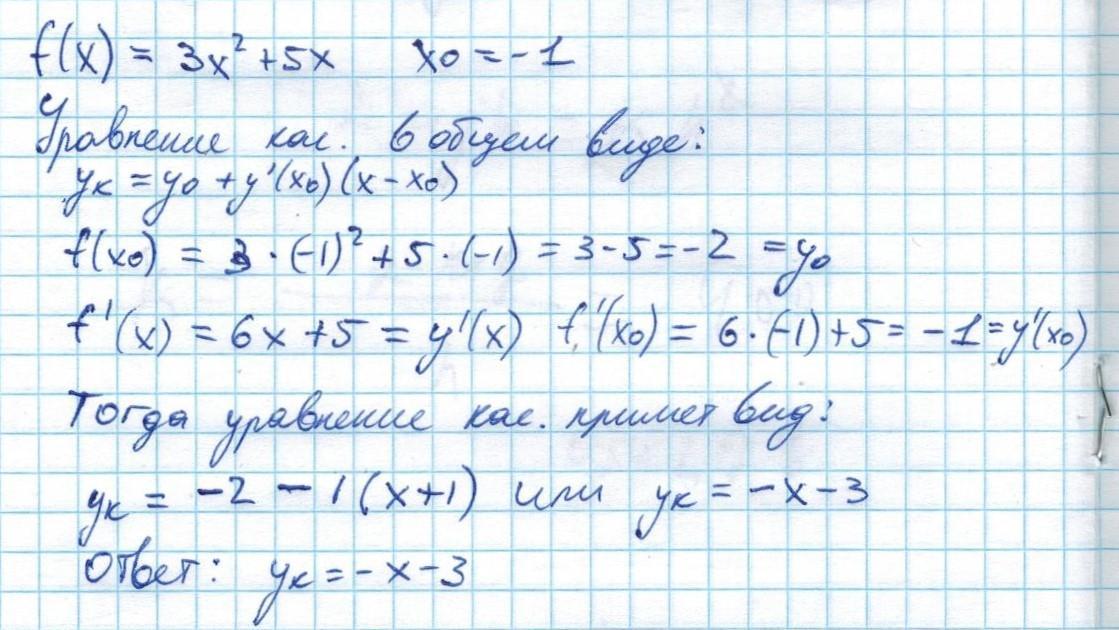 f(x) = 3x² + 5x x₀ = -1
Уравнение кас. в общем виде:
yк = y₀ + y'(x₀)(x - x₀)
f(x₀) = 3 · (-1)² + 5 · (-1) = 3 - 5 = -2 = y₀
f'(x) = 6x + 5 = y'(x) f'(x₀) = 6 · (-1) + 5 = -1 = y'(x₀)
Тогда уравнение кас. примет вид:
yк = -2 - 1(x+1) или yк = -x - 3
Ответ: yк = -x - 3